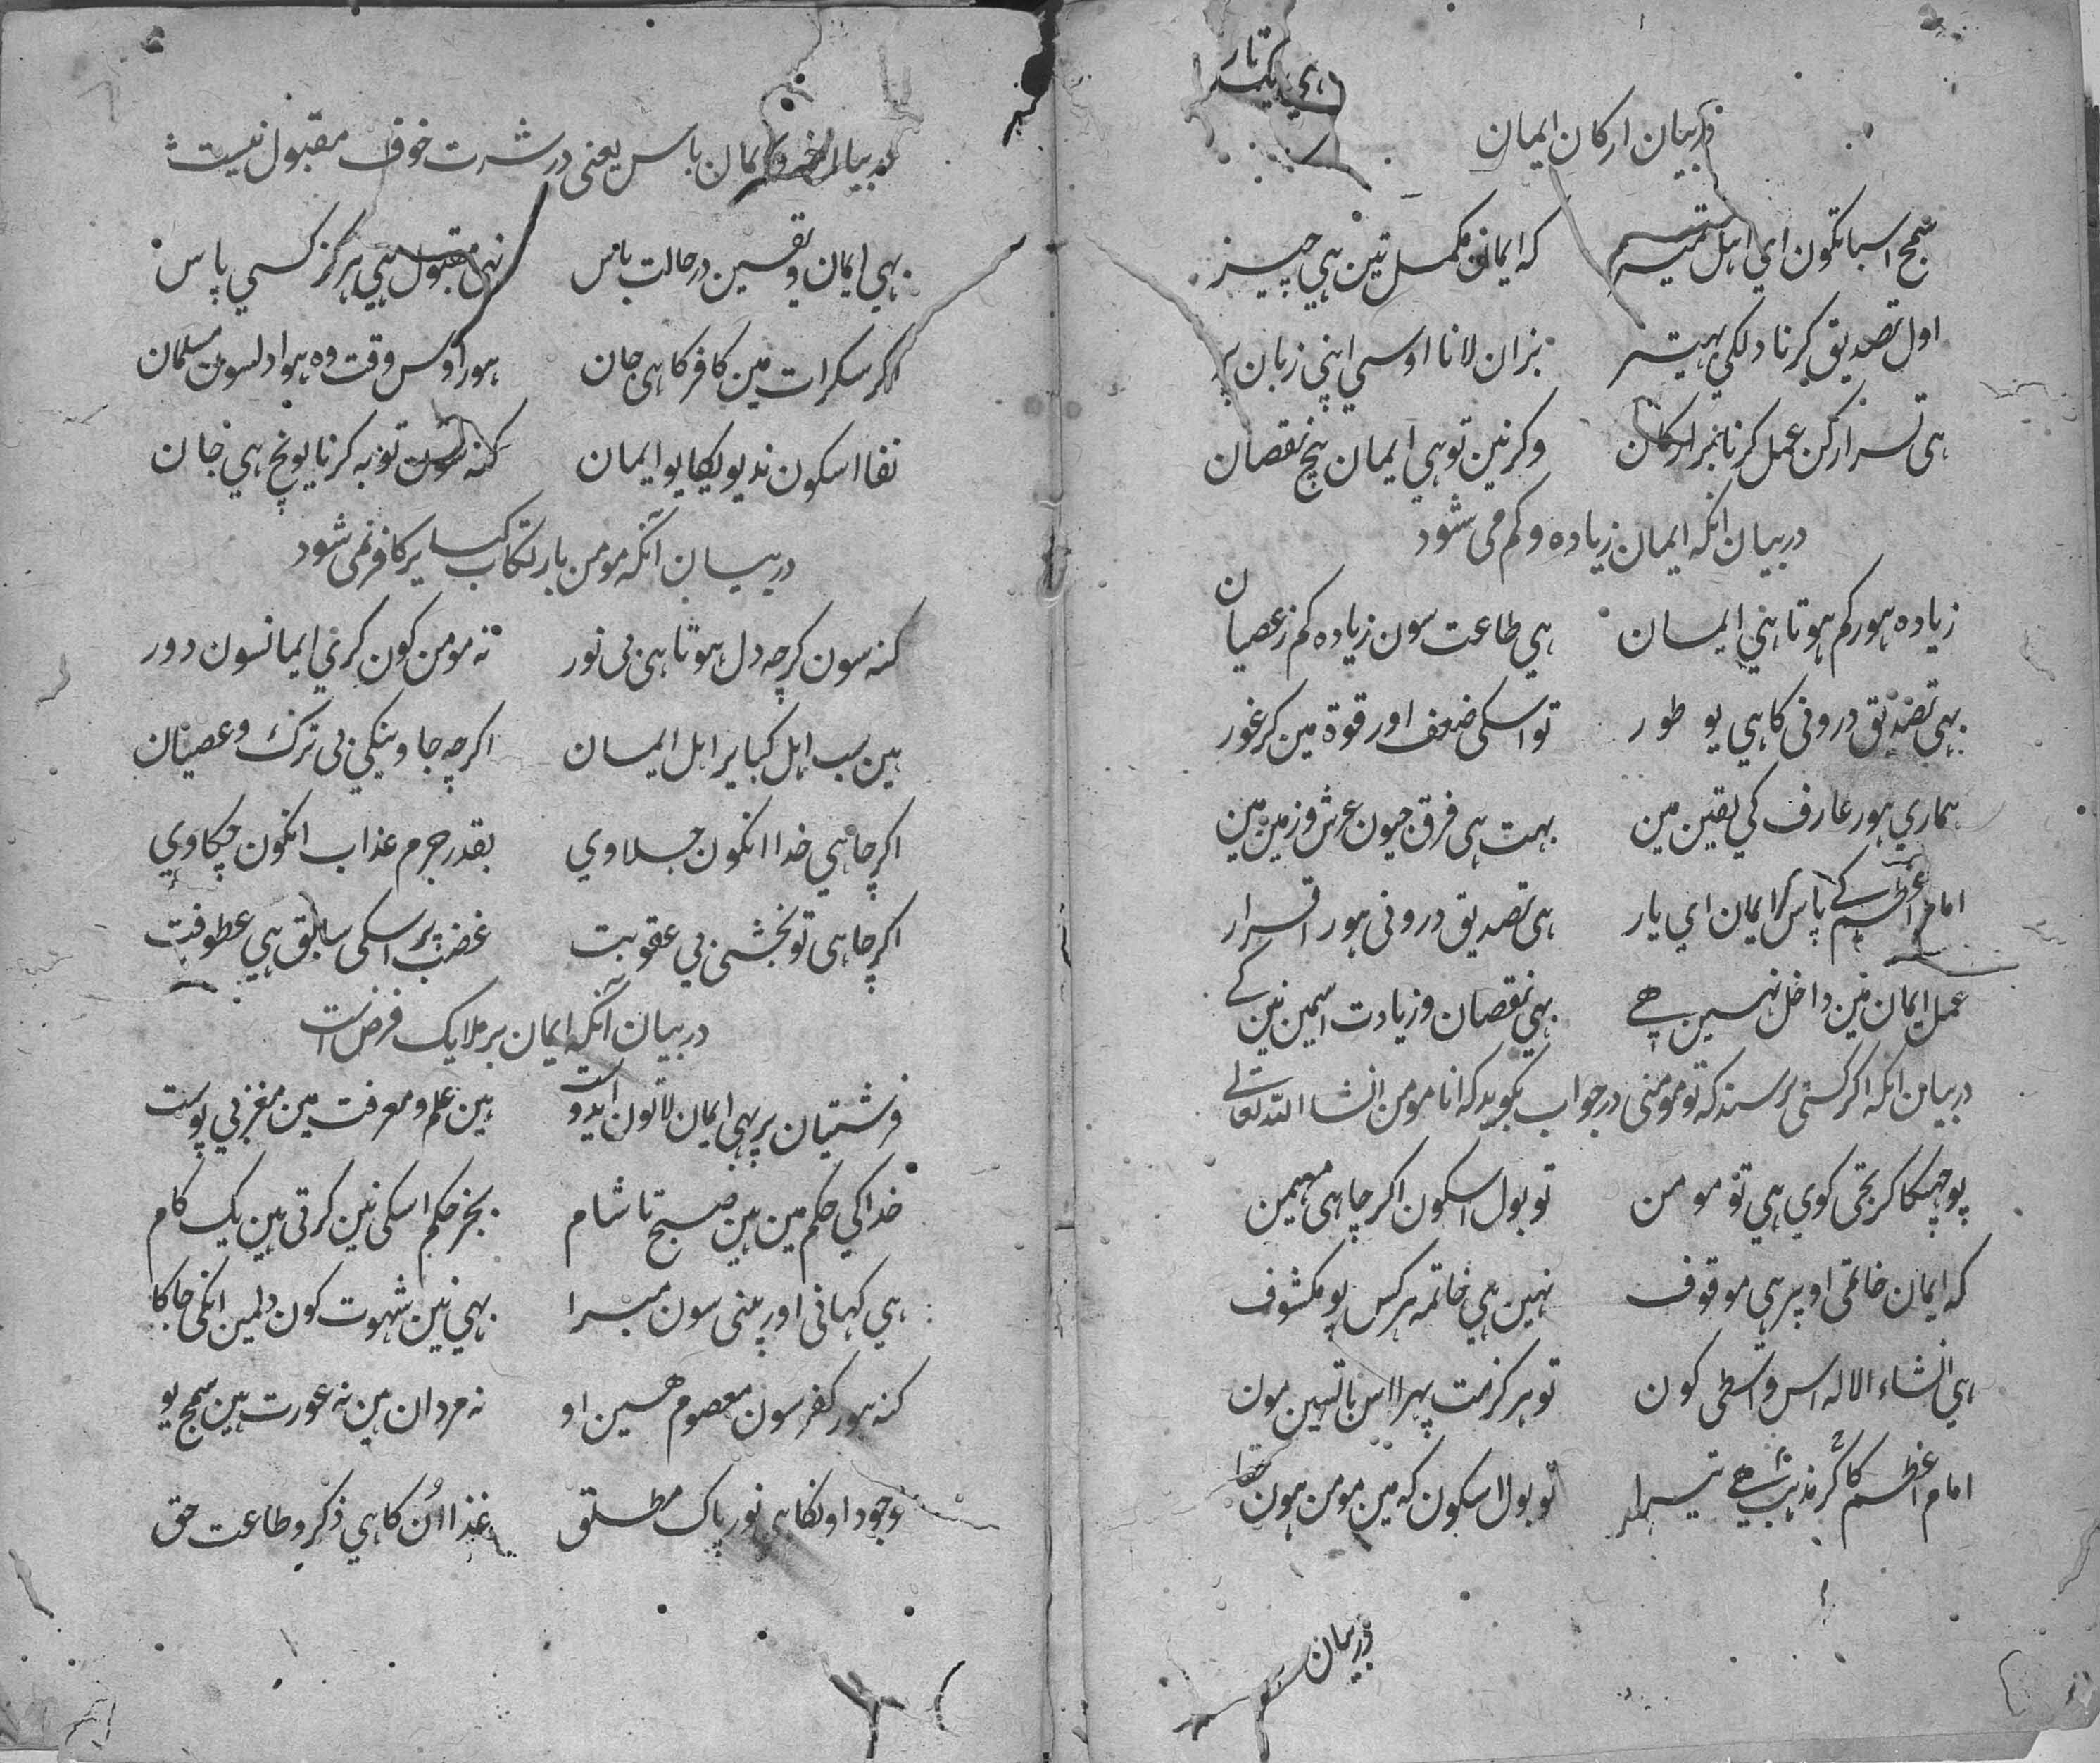 در بیان ارکان ایمان
سمج اسباتکون ای اهل تمیز که ایمان مکمل تین هي چیز
اول تصدیق کرنا دلکي بهیتر بزان لانا اوسي اپني زبان پر
هی تسرا رکن عمل کرنا بر ارکان وکر نین تو هي ایمان بیچ نقصان
در بیان انکه ایمان زیاده و کم می شود
زیاده هور کم هوتا هي ایمان هي طاعت سون زیاده کم ز عصیان
بهي تصدیق درونی کا هي یو طور تو اسکی ضعف اور قوة مین کر غور
هماري هور عارف کي یقین مین بهت هی فرق جیون عرش و زمین مین
امام اعظم کے پاس ایمان اي یار هی تصدیق درونی هور اقرار
عمل ایمان مین داخل نهین هے بهي نقصان و زیادت اسمین نین هے
در بیان انکه اکر کسی پرسد که تو مومنی در جواب بکوید که انا مومن انشا الله تعالی
پوچهیکا کر تجي کوي هي تو مومن تو بول اسکون اکر چاهی مهیمن
که ایمان خاتمي اوپر هی موقوف نهین هي خاتمه هر کس پو مکشوف
هي انشاء الاله اس واسطی کون تو هرکز مت پهرا اس باتسین مون
امام اعظم کا کر مذهب هے تیرا تو بول اسکون که مین مومن هون حقا
در بیان
در بیان ایمان باس یعنی در شدت خوف مقبول نیست
بهي ایمان و یقین در حالت باس نهي مقبول هي هرکز کسي پاس
اکر سکرات مین کافر کا هی جان هور اوس وقت وه هوا دلسون مسلمان
نفا اسکون ندیویکا یو ایمان کنه سون توبه کرنا یونچ هي جان
در بیان آنکه مومن بارتکاب کبایر کافر نمی شود
کنه سون کرچه دل هوتا هی بی نور نه مومن کون کري ایمانسون دور
هین سب اهل کبایر اهل ایمان اکرچه جاوینکي بی ترک و عصیان
اکر چاهي خدا انکون جلاوي بقدر جرم عذاب انکون چکاوي
اکر چاهی تو بخشی بي عقوبت غضب پر اسکی سابق هي عطوفت
در بیان آنکه ایمان بر ملایک فرض است
فرشتیان پر بهي ایمان لا تون ایدوست هین علم و معرفت مین مغز بي پوست
خدا کي حکم مین هین صبح تا شام بجز حکم اسکی نین کرتی هین یک کام
هي کهانی اور پینی سون مبرا بهي نین شهوت کون دلمین انکی جاکا
کنه هور کفر سون معصوم هین او نه مردان هین نه عورت هین سمج یو
وجود اونکا هی نور پاک مطلق غذا اُن کا هي ذکر و طاعت حق